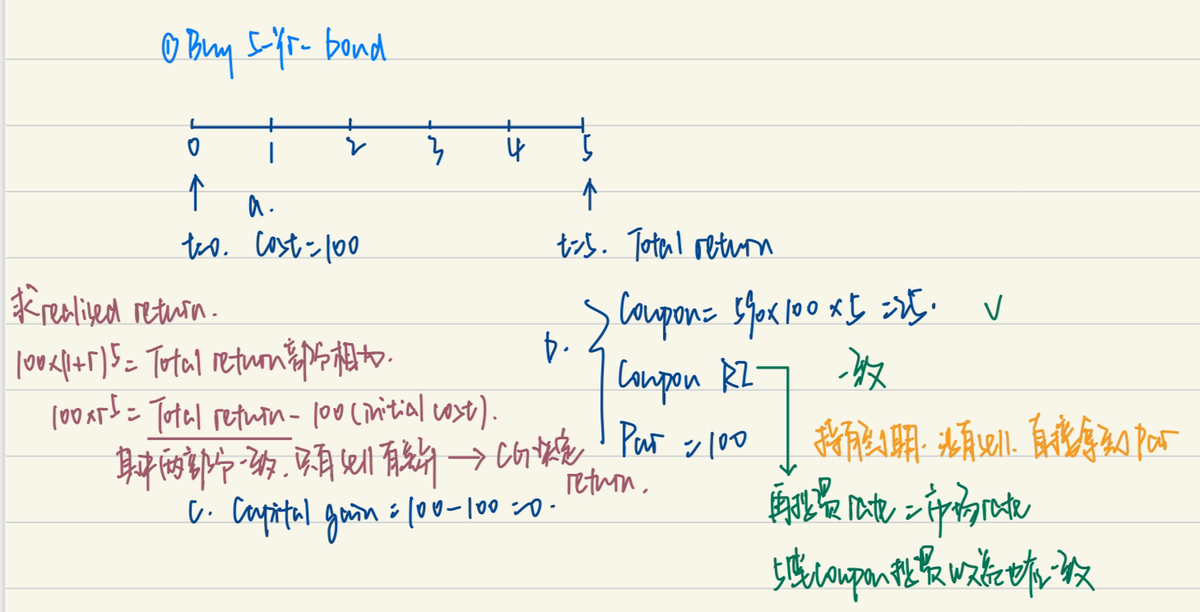 ① Buy 5-yr- bond
0 1 2 3 4 5
a.
t=0. Cost=100
t=5. Total return
求realised return.
100×(1+r)^5= Total return部分相加.
100×r^5= Total return - 100 (initial cost).
其中两部分一致. 只有sell有差异 → CG决定
return.
b.
Coupon= 5%×100×5 =25. ✓
Coupon RI → 一致
Par =100
持有到期. 没有sell. 直接拿到 Par
c. Capital gain = 100-100 =0.
再投资rate = 市场rate
5笔coupon投资收益也一致